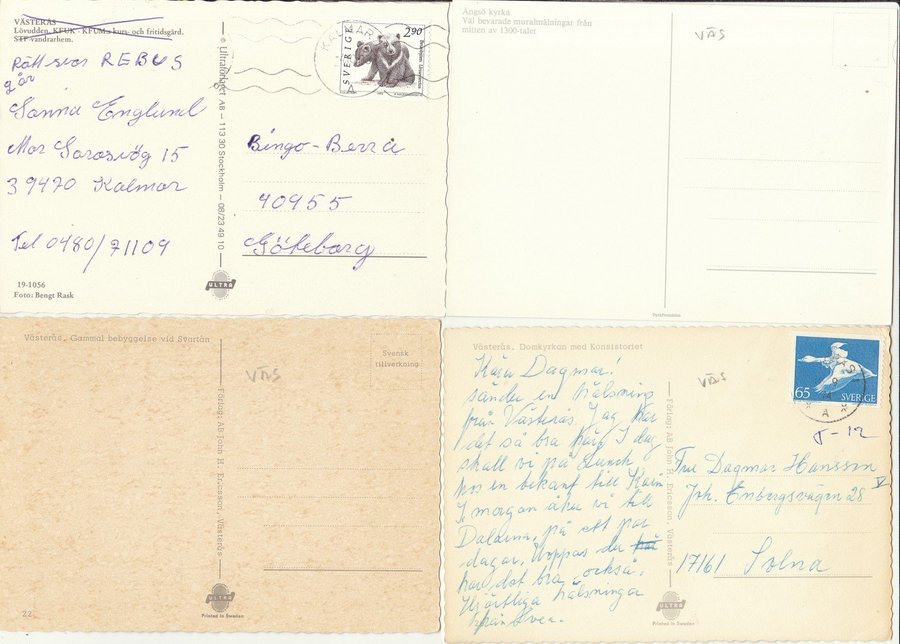 VÄSTERÅS
Lövudden. KFUK - KFUM:s kurs- och fritidsgård.
STF vandrarhem.
Rätt svar REBUS
går
Sanna Englund
Mor Saras väg 15
39470 Kalmar
Tel 0480/71109
19-1056
Foto: Bengt Rask
© Ultraförlaget AB – 113 30 Stockholm – 08/23 49 10
ULTRA
KALMAR
A
SVERIGE
290
Bingo-Berra
40955
Göteborg
Ängsö kyrka
Väl bevarade muralmålningar från
mitten av 1300-talet
VÄS
Västerås. Gammal bebyggelse vid Svartån
VÄS
Svensk
tillverkning
Förlag: AB John H. Ericsson, Västerås
22
ULTRA
Printed in Sweden
Västerås. Domkyrkan med Konsistoriet
VÄS
Kära Dagmar!
sänder en hälsning
från Västerås. Jag har
det så bra här. I dag
skall vi på lunch
hos en bekant till Karin
I morgon åka vi till
Dalarna, på ett par
dagar. Hoppas du
har det bra också.
Hjärtliga hälsningar
från Svea.
Förlag: AB John H. Ericsson, Västerås
65
SVERIGE
A
T-12
Fru Dagmar Hansson
Joh. Enbergsvägen 28 V
17161 Solna
ULTRA
Printed in Sweden